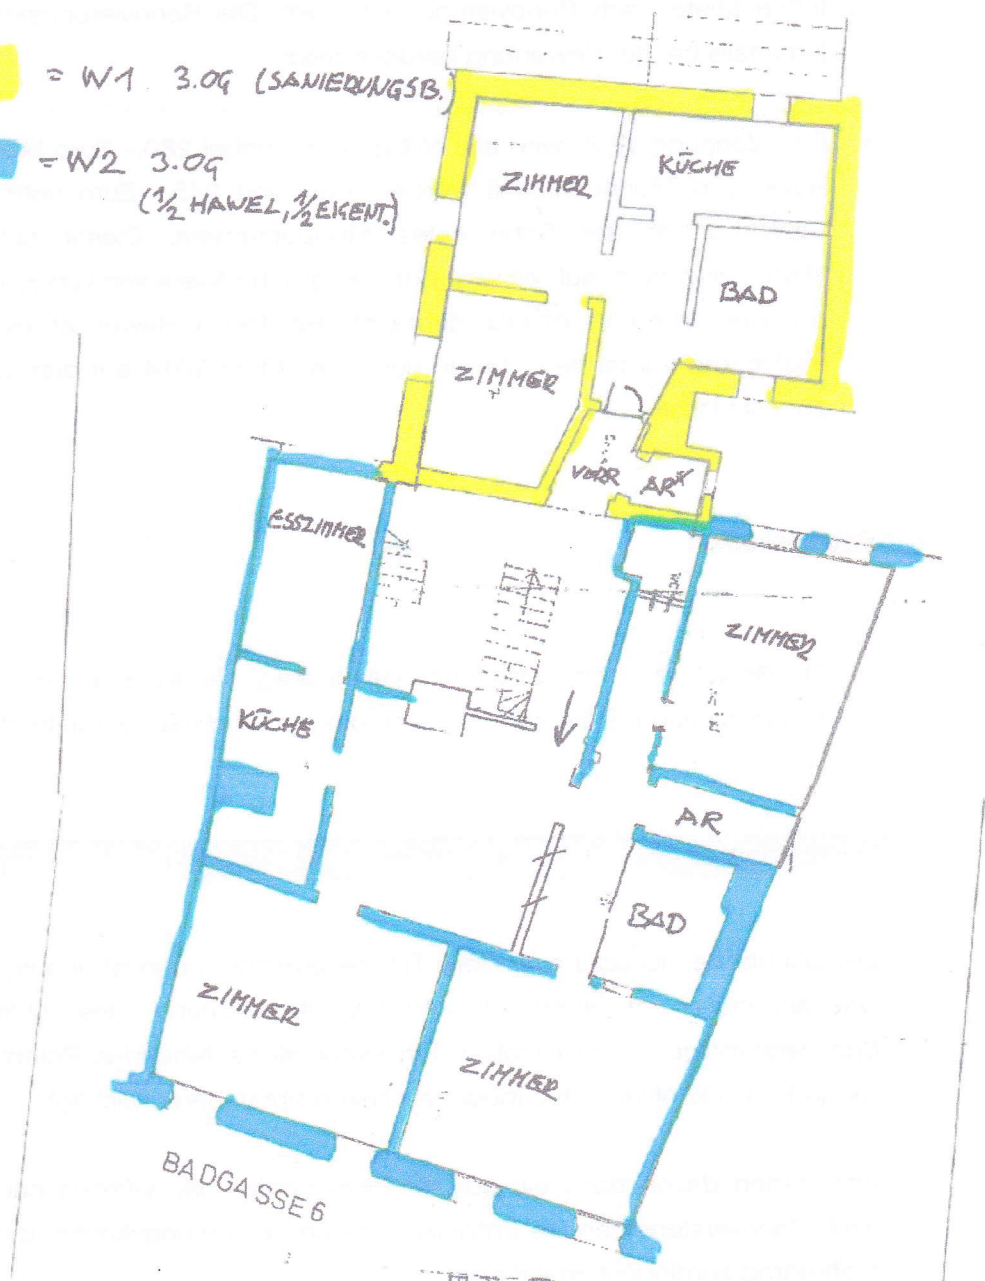 = W1 3.OG (SANIERUNGSB.)
= W2 3.OG
(1/2 HAWEL, 1/2 EIGENT.)
ZIMMER
KÜCHE
BAD
ZIMMER
VORR
AR
ESSZIMMER
ZIMMER
KÜCHE
AR
BAD
ZIMMER
ZIMMER
BADGASSE 6